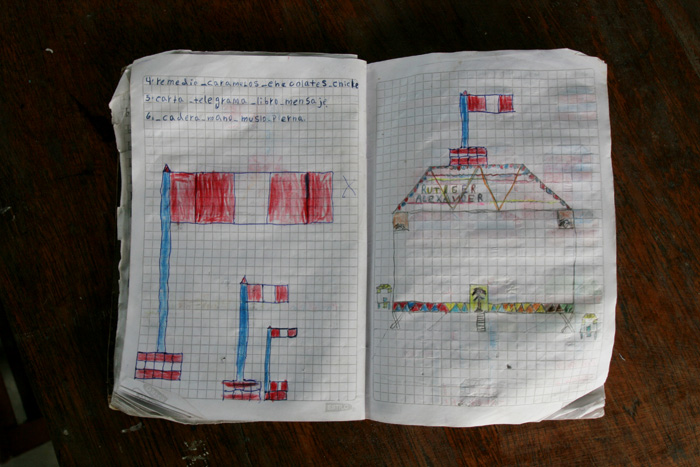 4. remedio_caramelos_chocolates_chicle
5. carta_telegrama_libro_mensaje
6. _cadera_mano_muslo_pierna
X
RUTIGER
ALEXANDER